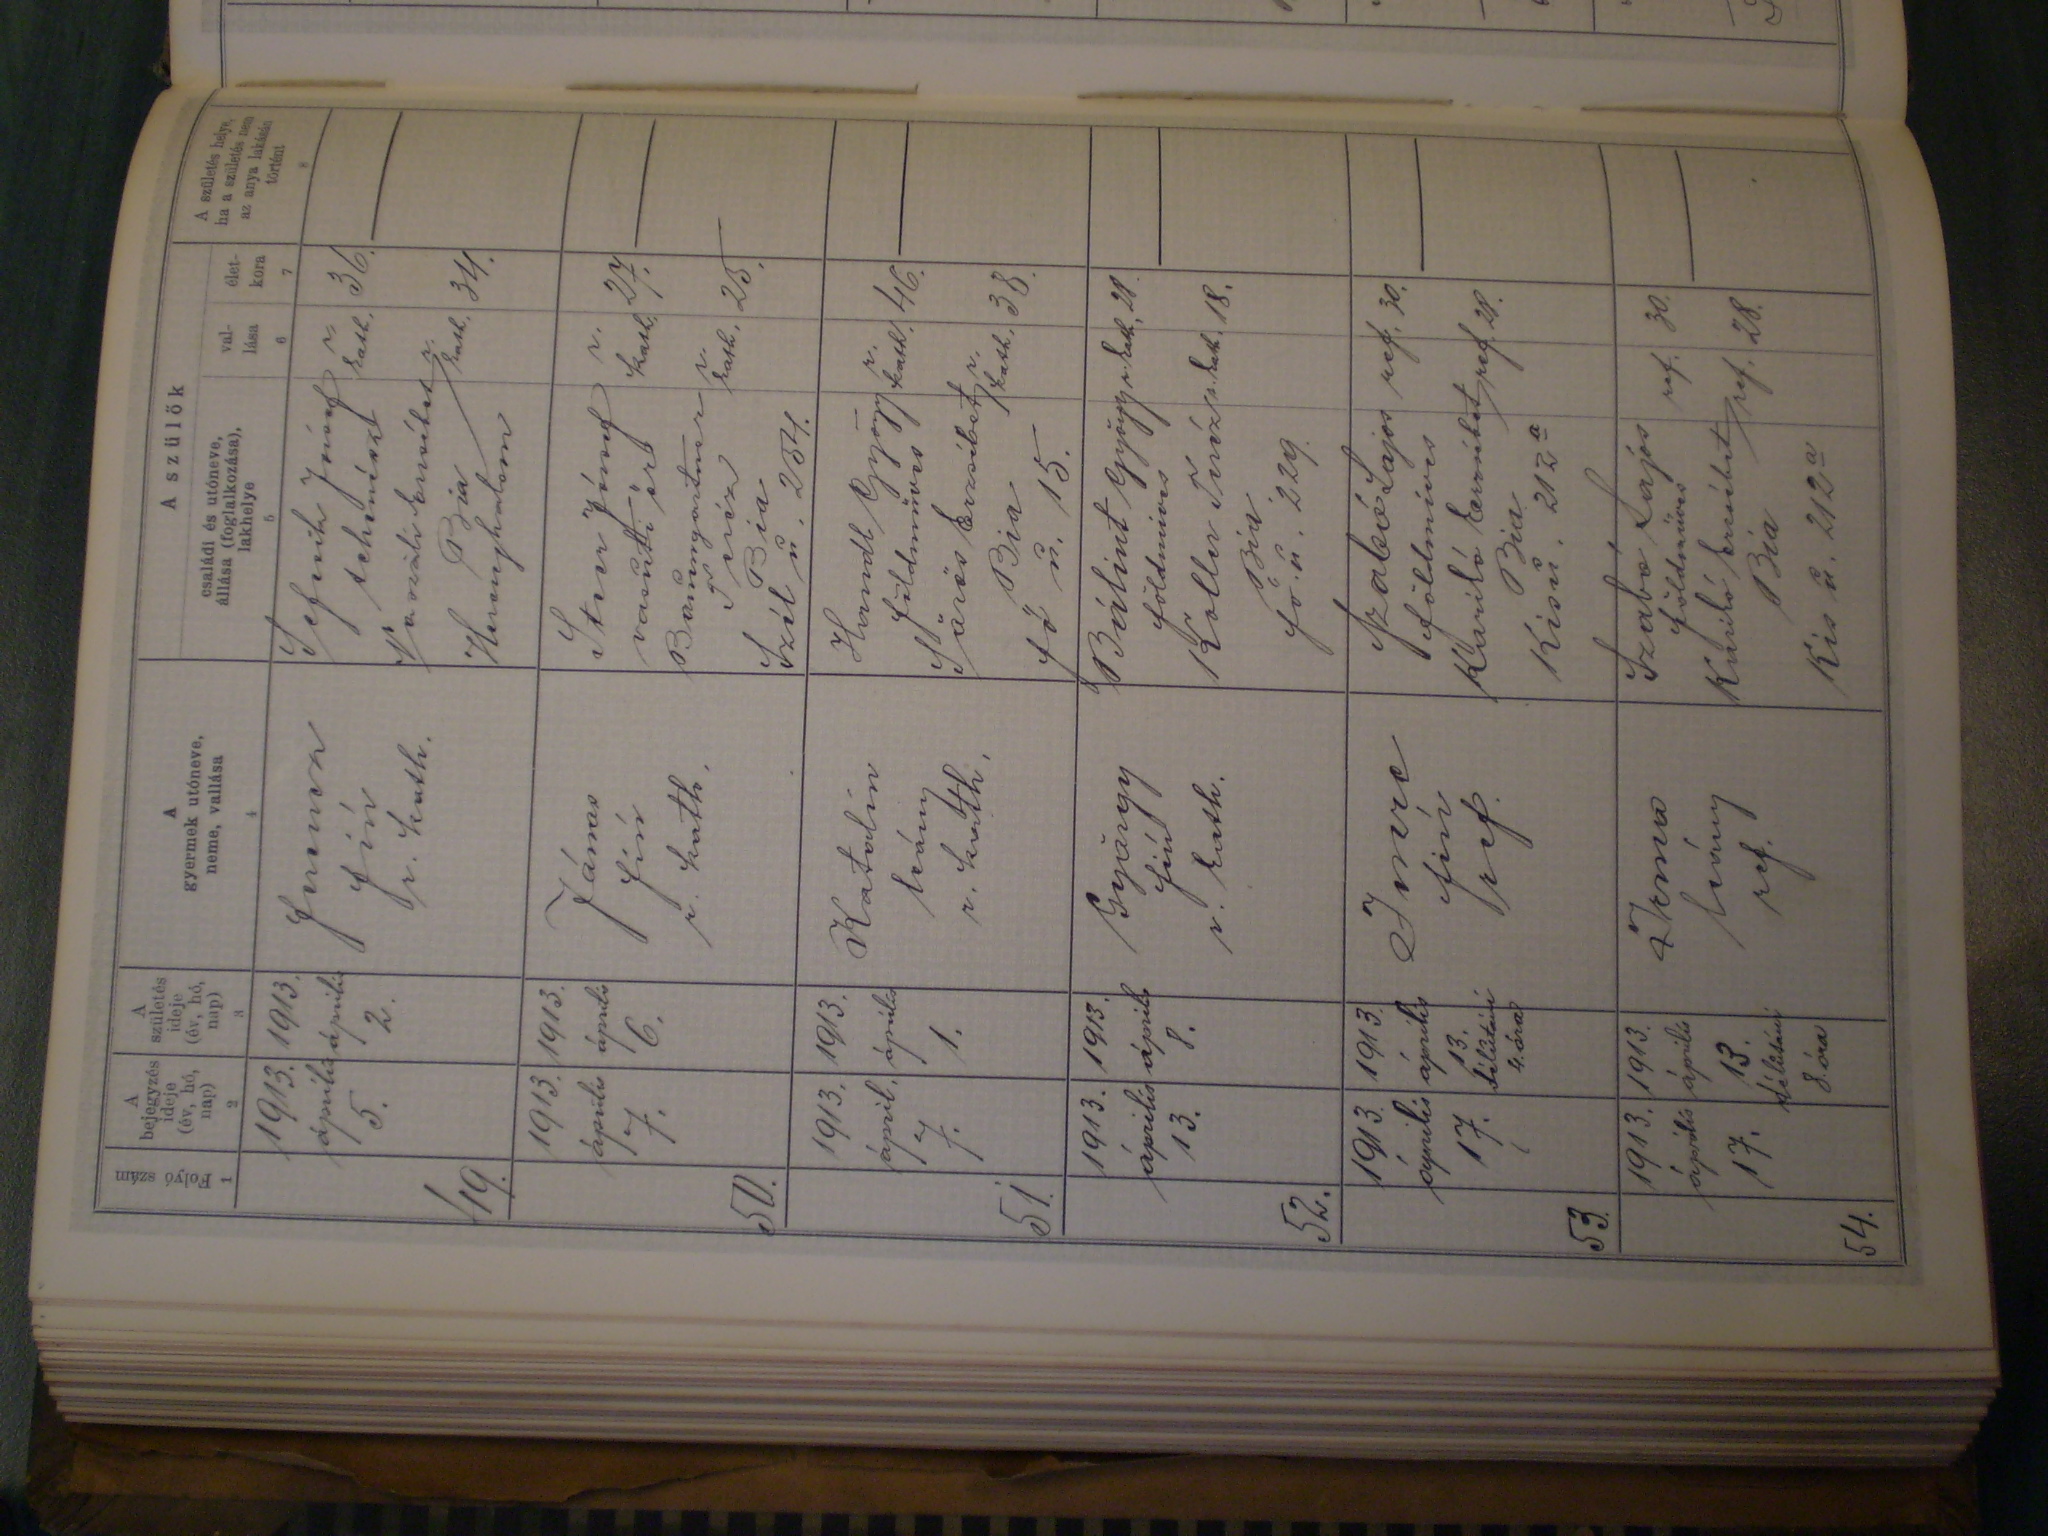 Folyó szám
1
A bejegyzés ideje (év, hó, nap)
2
A születés ideje (év, hó, nap)
3
A gyermek utóneve, neme, vallása
4
A szülők
családi és utóneve, állása (foglalkozása), lakhelye
5
val-
lása
6
élet-
kora
7
A születés helye, ha a születés nem az anya lakásán történt
8
49.
1913.
április
5.
1913.
április
2.
Ferencz
fiú
r. kath.
József
tehenész
Erzsébet
Bia
Herczeghalom
r. kath. 36.
r. kath. 34.
50.
1913.
április
7.
1913.
április
6.
János
fiú
r. kath.
Ster János
vasúti őr
Baumgartner
Teréz
Bia
Szél u. 254.
r. kath. 27.
r. kath. 25.
51.
1913.
április.
7.
1913.
április
1.
Katalin
leány
r. kath.
Handl György
földműves
Sárös Erzsébet
Bia
Fő u. 15.
r. kath. 46.
r. kath. 38.
52.
1913.
április
13.
1913.
április
8.
György
fiú
r. kath.
Bálint György
földmíves
Koller Teréz
Bia
Fő. u. 229.
r. kath. 28.
r. kath. 18.
53.
1913.
április
17.
1913.
április
13.
délutáni
4. óra
Imre
fiú
ref.
Szabó Lajos
földmíves
Kariló Erzsébet
Bia
Kis u. 212 a
ref. 30.
ref. 28.
54.
1913.
április
17.
1913.
április
13.
délutáni
8. óra
Irma
leány
ref.
Szabó Lajos
földműves
Kariló Erzsébet
Bia
Kis u. 212 a
ref. 30.
ref. 28.